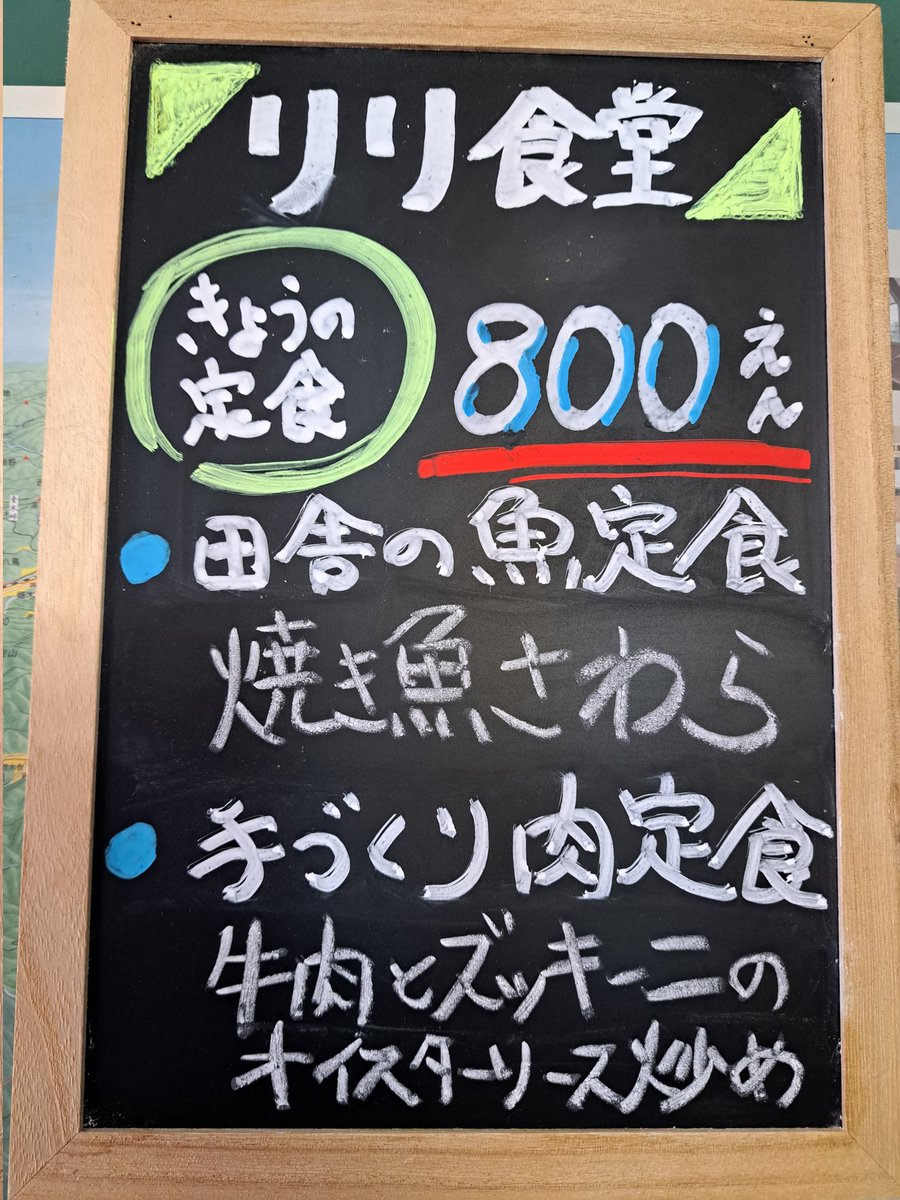 リリ食堂
きょうの
定食
800えん
田舎の魚定食
焼き魚さわら
手づくり肉定食
牛肉とズッキーニの
オイスターソース炒め